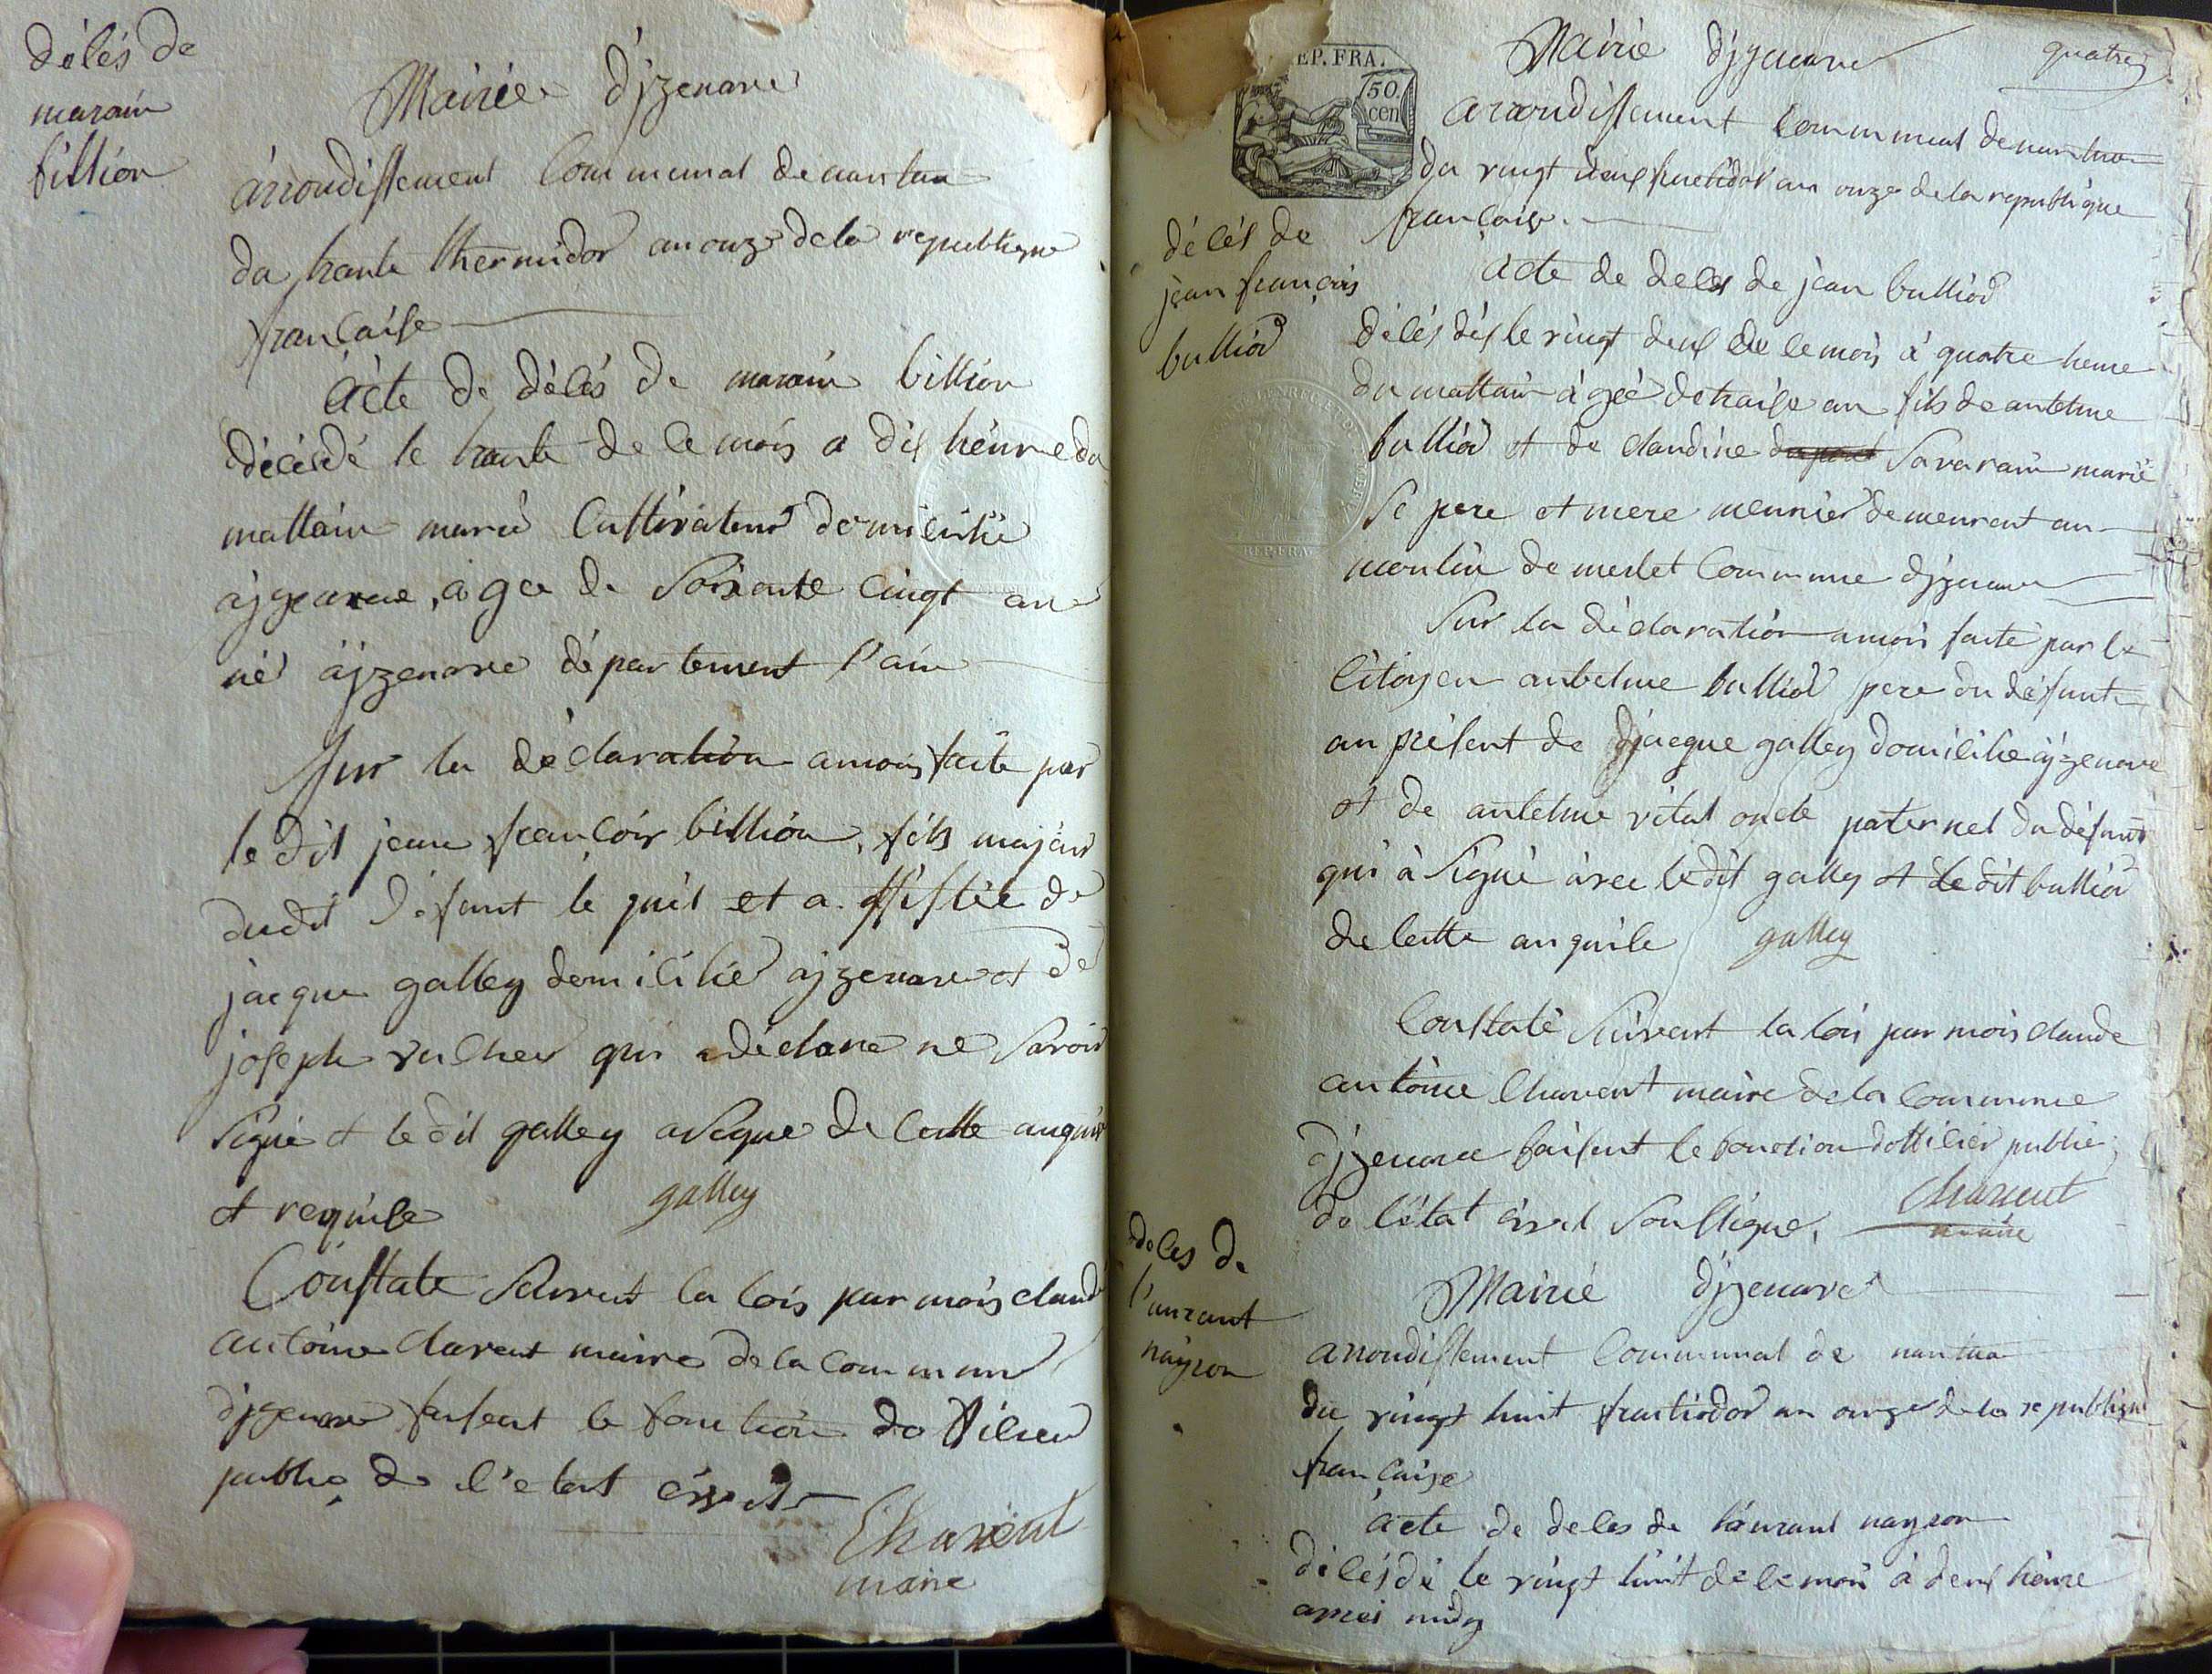 décés de
marain
billion
Mairie d'jzenave
arrondissement Communal de nantua
du trante thermidor an onze de la republique
française
acte de décés de marain billion
décésdé le trante de ce mois a dix heure du
mattain marié Cultivateur domicilié
ajzenave, agée de soixante Cinqt an
né àjzenave département l'ain
Sur la déclaration a mois faite par
le dit jean françois billion, fils majeur
dudit défunt le quel et a ssistée de
jacque galley domicilié ajzenave et de
joseph vucher qui a déclare ne savoir
signé et le dit galley aveque de Cette anquis
et requise galley
Constate suivent la lois par mois claude
antoine Chavent maire de la Commune
djzenave faisent le fonction do fficier
public de l'etat civil
Chavent
maire
quatre
EP. FRA.
50.
cen
Mairie djzenave
arrondissement Communal de nantua
du vingt deux fructidor an onze de la republique
française.
décés de
jean françois
bulliod
acte de decés de jean bulliod
décés dés le vingt deux de ce mois à quatre heure
du mattain àgeé de traise an fils de antelme
bulliod et de claudine savarain marié
se pere et mere meunier demeurent au
moulin de merlet Commune djzenave
Sur la déclaration a mois faite par le
Citoyen antelme bulliod pere du défunt
an présent de jacque galley domicilié àjzenave
et de antelme vital oncle paternel du défunt
qui à signé avec le dit galley et le dit bulliod
de Cette anquise galley
Constaté suivent la lois par mois claude
antoine Chavent maire de la Commune
djzenave faisent le fonction dofficier public
de l'état civil soussigne, Chavent
maire
deces de
l'aurant
nayron
Mairie djzenave
arrondissement Communal de nantua
du vingt huit fructidor an onze de la republique
française
acte de deces de l'aurant nayron
décésdé le vingt huit de ce mois à deux heure
aprei midy